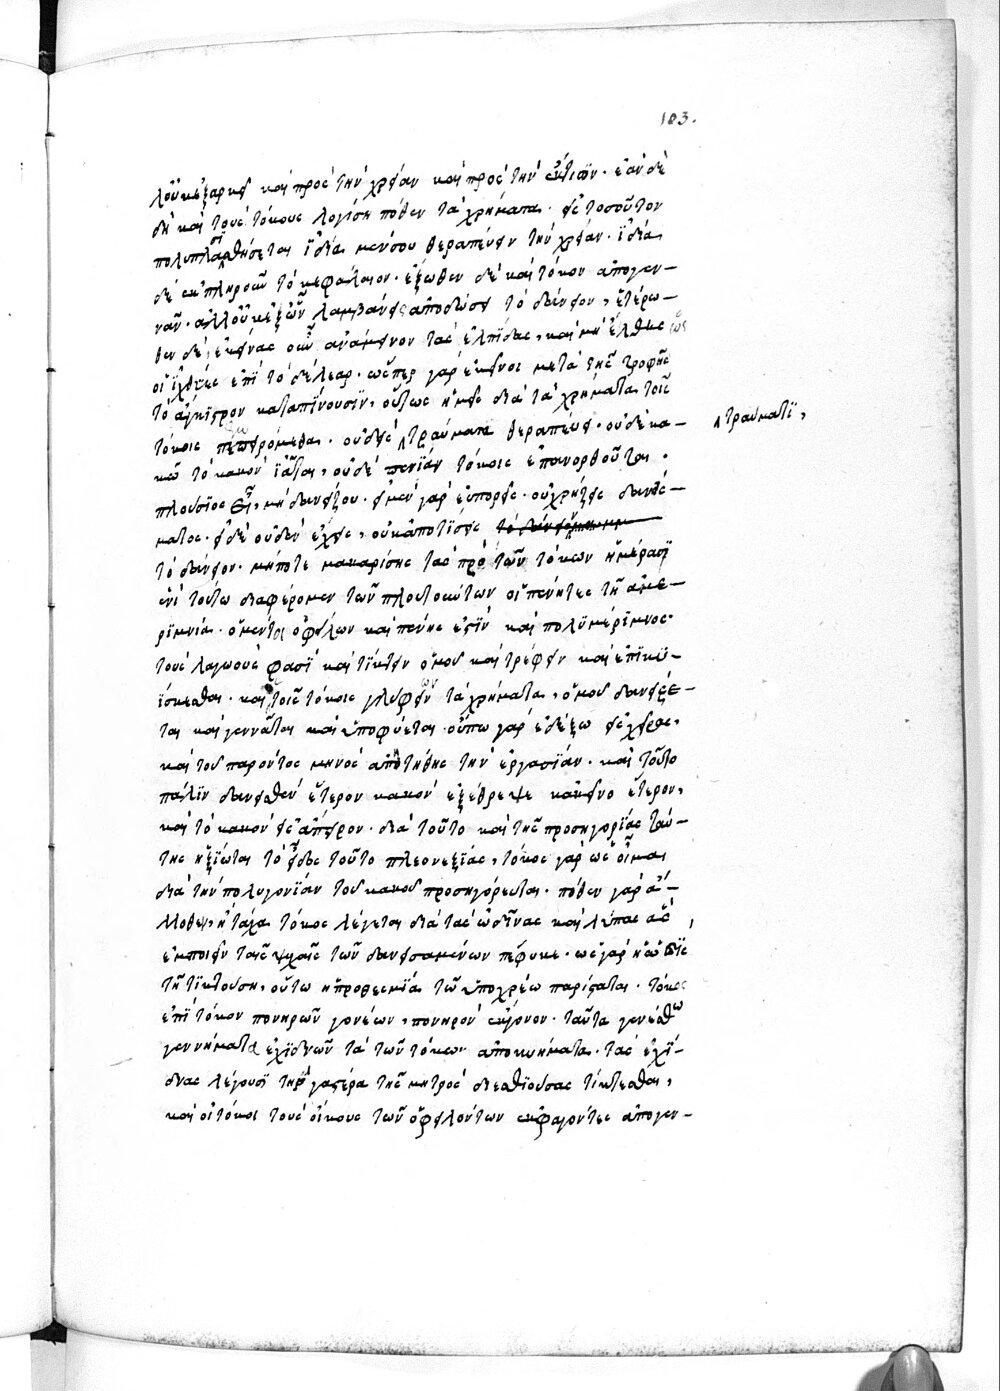 183.
λ' οὐκ ἐξαρκεῖ καὶ πρὸς τὴν χρείαν καὶ πρὸς τὴν ἔκτισιν. ἐὰν δὲ
δὴ καὶ τοὺς τόκους λογίσῃ πόθεν τὰ χρήματα. εἰς τοσοῦτον
πολυπλασιασθήσεται ἰδίᾳ μέν σου θεραπεύειν τὴν χρείαν. ἰδίᾳ
δὲ ἐκπληροῦν τὸ κεφάλαιον. ἔξωθεν δὲ καὶ τόκον ἀπογεν-
νᾶν. ἀλλ' οὐκ ἐξ ὧν λαμβάνεις ἀποδώσεις τὸ δάνειον, ἑτέρω-
θεν δέ, ἐκείνας οὖν ἀνάμεινον τὰς ἐλπίδας, καὶ μὴ ἔλθῃς ὡς
οἱ ἰχθύες ἐπὶ τὸ δέλεαρ. ὥσπερ γὰρ ἐκεῖνοι μετὰ τῆς τροφῆς
τὸ ἄγκιστρον καταπίνουσιν, οὕτως ἡμεῖς διὰ τὰ χρήματα τοῖς
τόκοις πειρόμεθα. οὐδεὶς τραύματα θεραπεύει. οὐδὲ κα-
τραύματι,
κῷ τὸ κακὸν ἰᾶται, οὐδὲ πενίαν τόκοις ἐπανορθοῦται.
πλούσιος εἶ, μὴ δανείζου. εἰ μὲν γὰρ εὐπορεῖς. οὐ χρῄζεις δανείς-
ματος. εἰ δὲ οὐδὲν ἔχεις, οὐκ ἀποτίσεις
τὸ δάνειον. μήποτε μακαρίσῃς τὰς πρὸ τῶν τόκων ἡμέρας
ἑνὶ τούτῳ διαφέρομεν τῶν πλουτούντων οἱ πένητες τῇ ἀμε-
ριμνίᾳ. ὁ μέντοι ὀφείλων καὶ πένης ἐστὶν καὶ πολυμέριμνος.
τοὺς λαγωούς φασὶ καὶ τίκτειν ὁμοῦ καὶ τρέφειν καὶ ἐπικυ-
ΐσκεσθαι. καὶ τοῖς τόκοις τὰ χρήματα, ὁμοῦ δανείζε-
ται καὶ γεννᾶται καὶ ὑποφύεται. οὔπω γὰρ ἐδέξω εἰς χεῖρας,
καὶ τοῦ παρόντος μηνὸς ἀπῃτήθης τὴν ἐργασίαν. καὶ τοῦτο
πάλιν δανεισθὲν ἕτερον κακὸν ἐξέθρεψε κἀκεῖνο ἕτερον,
καὶ τὸ κακὸν εἰς ἄπειρον. διὰ τοῦτο καὶ τῆς προσηγορίας ταύ-
της ἠξίωται τὸ εἶδος τοῦτο πλεονεξίας, τόκος γὰρ ὡς οἶμαι
διὰ τὴν πολυγονίαν τοῦ κακοῦ προσηγόρευται. πόθεν γὰρ ἄ-
λλοθεν, ἢ τάχα τόκος λέγεται διὰ τὰς ὠδῖνας καὶ λύπας ἃς
ἐμποιεῖν ταῖς ψυχαῖς τῶν δανεισαμένων πέφυκε. ὡς γὰρ ἡ ὠδὶς
τῇ τικτούσῃ, οὕτω ἡ προθεσμία τῷ ὑποχρέῳ παρίσταται. τόκος
ἐπὶ τόκον πονηρῶν γονέων, πονηρὸν ἔκγονον. ταῦτα γενέσθω
γεννήματα ἐχιδνῶν τὰ τῶν τόκων ἀποκυήματα. τὰς ἐχί-
δνας λέγουσι τὴν γαστέρα τῆς μητρὸς διεσθιούσας τίκτεσθαι,
καὶ οἱ τόκοι τοὺς οἴκους τῶν ὀφειλόντων ἐκφαγόντες ἀπογεν-